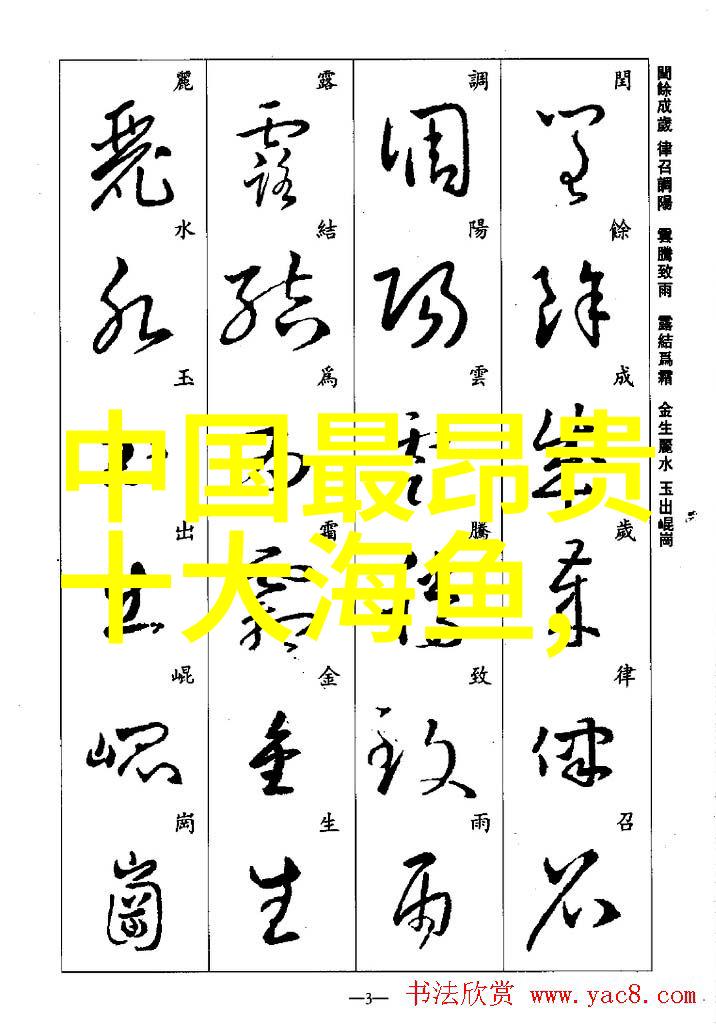 閏餘成歲 律召調陽 雲騰致雨 露結爲霜 金生麗水 玉出崐崗
閏餘成歲律召
調陽雲騰致雨
露結爲霜金生
麗水玉出崐崗
中国最昂贵
十大海鱼,
—3—
书法欣赏 www.yac8.com